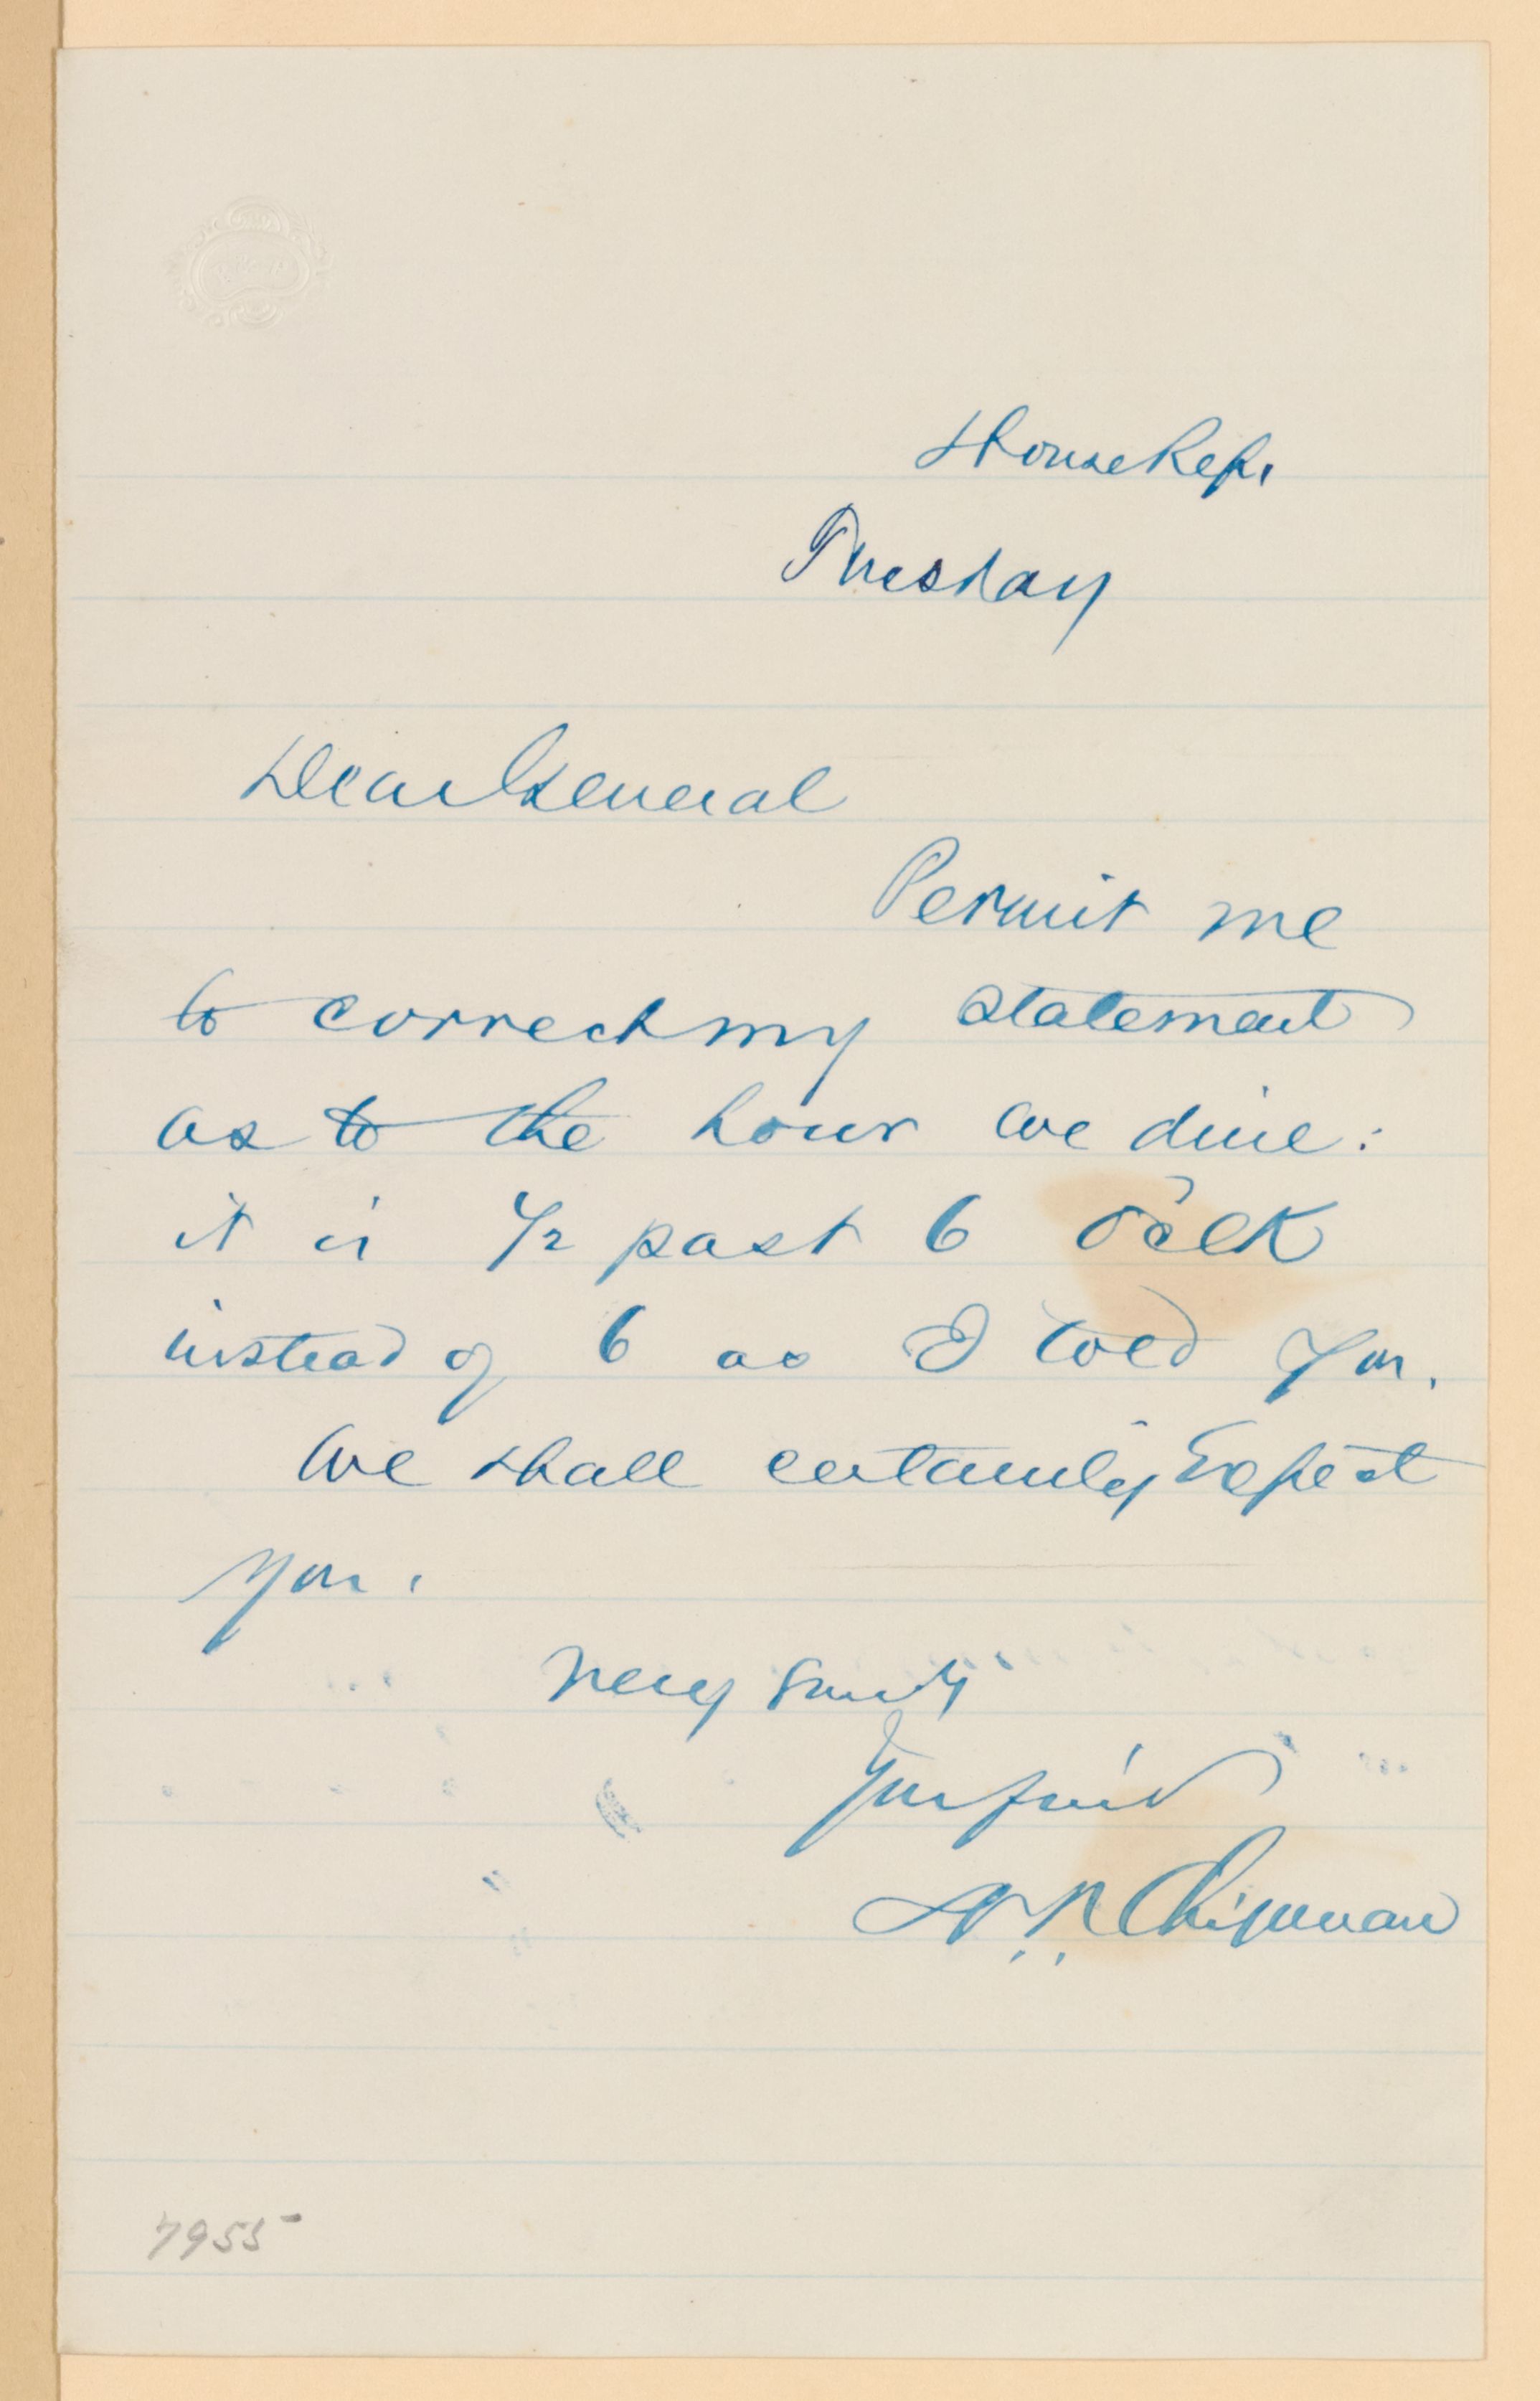 House Rep.
Tuesday
Dear General
Permit me
to correct my statement
as to the hour we dine:
it is 1/2 past 6 o'clk
instead of 6 as I told you.
We shall certainly Expect
you.
Very
Your friend
N. P. Chipman
7955